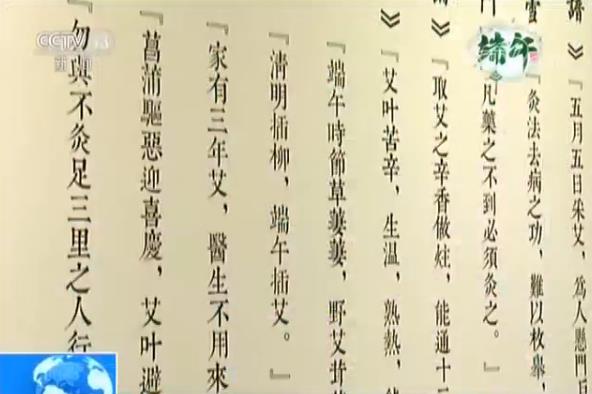 譜》『五月五日采艾，爲人懸門戶
『灸法去病之功，難以枚舉，
凡藥之不到必須灸之。』
》『取艾之辛香做炷，能通十二
》『艾叶苦辛，生温，熟熱，
『端午時節草萋萋，野艾茸
『清明插柳，端午插艾。』
『家有三年艾，醫生不用來
『菖蒲驅惡迎喜慶，艾叶避
『勿與不灸足三里之人行
CCTV 13
新闻
端午